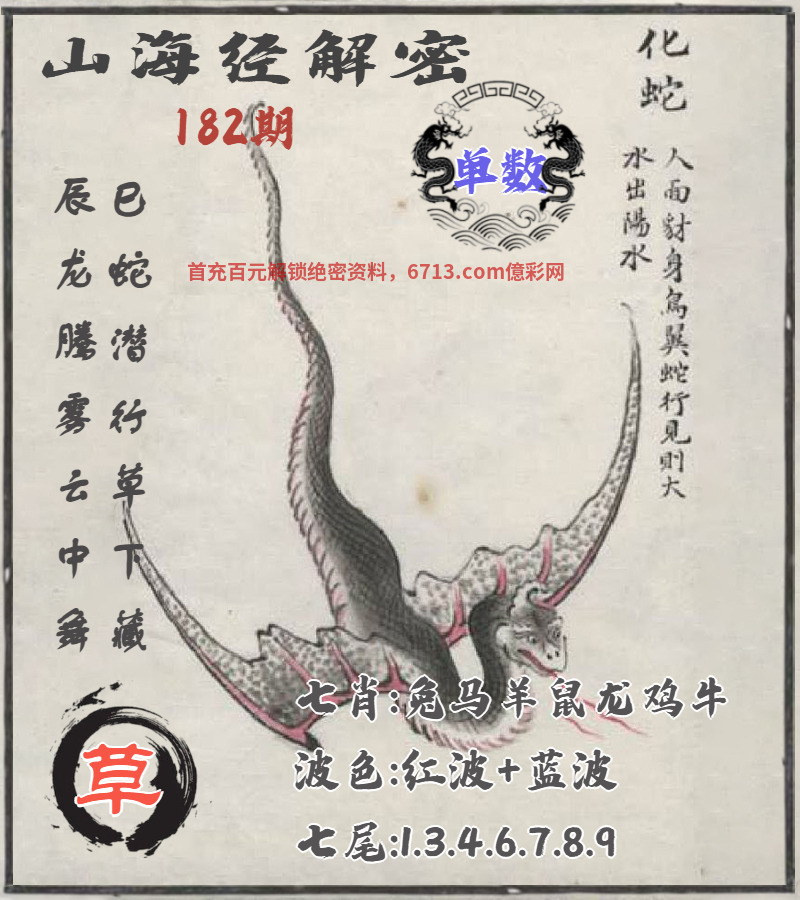 山海经解密
182期
单数
化蛇
人面豺身鳥翼蛇行見則大
水出陽水
首充百元解锁绝密资料，6713.com億彩网
巳蛇潜行草下藏
辰龙腾雾云中舞
草
七肖:兔马羊鼠龙鸡牛
波色:红波+蓝波
七尾:1.3.4.6.7.8.9